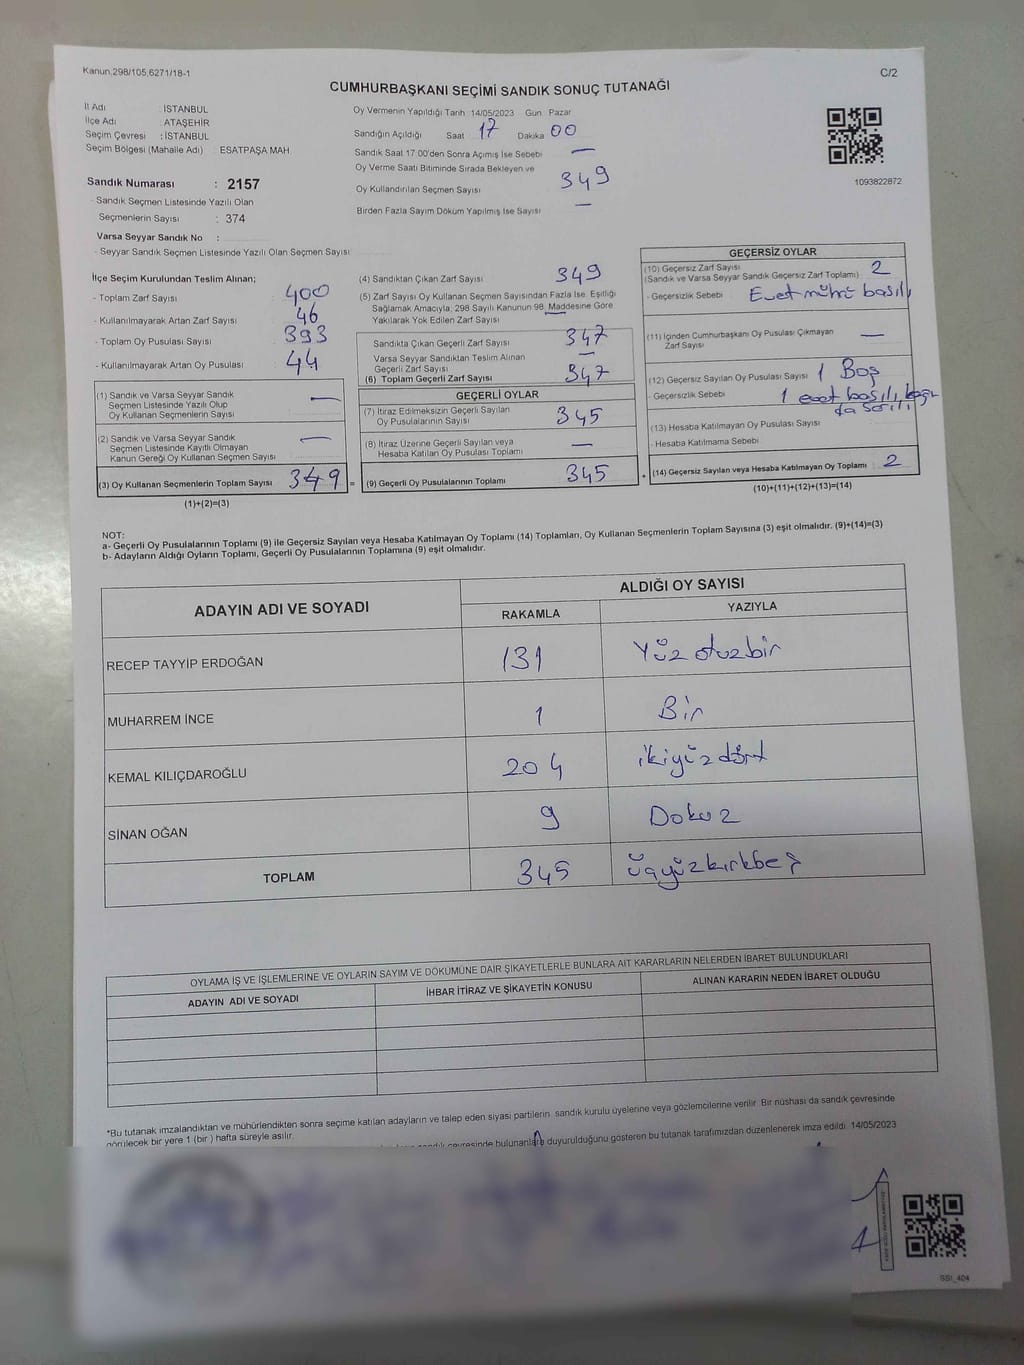 Kanun.298/105,6271/18-1
C/2
CUMHURBAŞKANI SEÇİMİ SANDIK SONUÇ TUTANAĞI
İl Adı : İSTANBUL
İlçe Adı : ATAŞEHİR
Seçim Çevresi : İSTANBUL
Seçim Bölgesi (Mahalle Adı) : ESATPAŞA MAH.
Sandık Numarası : 2157
- Sandık Seçmen Listesinde Yazılı Olan
Seçmenlerin Sayısı : 374
Varsa Seyyar Sandık No :
- Seyyar Sandık Seçmen Listesinde Yazılı Olan Seçmen Sayısı :
Oy Vermenin Yapıldığı Tarih 14/05/2023 Gün Pazar
Sandığın Açıldığı Saat 17 Dakika 00
Sandık Saat 17:00'den Sonra Açımış İse Sebebi —
Oy Verme Saati Bitiminde Sırada Bekleyen ve
Oy Kullandırılan Seçmen Sayısı 349
Birden Fazla Sayım Döküm Yapılmış İse Sayısı —
1093822872
İlçe Seçim Kurulundan Teslim Alınan;
- Toplam Zarf Sayısı : 400
- Kullanılmayarak Artan Zarf Sayısı : 46
- Toplam Oy Pusulası Sayısı : 393
- Kullanılmayarak Artan Oy Pusulası : 44
(1) Sandık ve Varsa Seyyar Sandık
Seçmen Listesinde Yazılı Olup
Oy Kullanan Seçmenlerin Sayısı —
(2) Sandık ve Varsa Seyyar Sandık
Seçmen Listesinde Kayıtlı Olmayan
Kanun Gereği Oy Kullanan Seçmen Sayısı —
(3) Oy Kullanan Seçmenlerin Toplam Sayısı 349 =
(1)+(2)=(3)
(4) Sandıktan Çıkan Zarf Sayısı 349
(5) Zarf Sayısı Oy Kullanan Seçmen Sayısından Fazla İse, Eşitliği
Sağlamak Amacıyla; 298 Sayılı Kanunun 98. Maddesine Göre
Yakılarak Yok Edilen Zarf Sayısı —
Sandıkta Çıkan Geçerli Zarf Sayısı 347
Varsa Seyyar Sandıktan Teslim Alınan
Geçerli Zarf Sayısı —
(6) Toplam Geçerli Zarf Sayısı 347
GEÇERLİ OYLAR
(7) İtiraz Edilmeksizin Geçerli Sayılan
Oy Pusulalarının Sayısı 345
(8) İtiraz Üzerine Geçerli Sayılan veya
Hesaba Katılan Oy Pusulası Toplamı —
(9) Geçerli Oy Pusulalarının Toplamı 345 +
GEÇERSİZ OYLAR
(10) Geçersiz Zarf Sayısı
(Sandık ve Varsa Seyyar Sandık Geçersiz Zarf Toplamı) 2
- Geçersizlik Sebebi Evet mührü basılı
(11) İçinden Cumhurbaşkanı Oy Pusulası Çıkmayan
Zarf Sayısı —
(12) Geçersiz Sayılan Oy Pusulası Sayısı 1 Boş
- Geçersizlik Sebebi 1 evet basılı,
(13) Hesaba Katılmayan Oy Pusulası Sayısı
- Hesaba Katılmama Sebebi
(14) Geçersiz Sayılan veya Hesaba Katılmayan Oy Toplamı 2
(10)+(11)+(12)+(13)=(14)
NOT:
a- Geçerli Oy Pusulalarının Toplamı (9) ile Geçersiz Sayılan veya Hesaba Katılmayan Oy Toplamı (14) Toplamları, Oy Kullanan Seçmenlerin Toplam Sayısına (3) eşit olmalıdır. (9)+(14)=(3)
b- Adayların Aldığı Oyların Toplamı, Geçerli Oy Pusulalarının Toplamına (9) eşit olmalıdır.
ADAYIN ADI VE SOYADI
ALDIĞI OY SAYISI
RAKAMLA YAZIYLA
RECEP TAYYİP ERDOĞAN 131 Yüz otuzbir
MUHARREM İNCE 1 Bir
KEMAL KILIÇDAROĞLU 204 ikiyüzdört
SİNAN OĞAN 9 Dokuz
TOPLAM 345 üçyüzkırkbeş
OYLAMA İŞ VE İŞLEMLERİNE VE OYLARIN SAYIM VE DÖKÜMÜNE DAİR ŞİKAYETLERLE BUNLARA AİT KARARLARIN NELERDEN İBARET BULUNDUKLARI
ADAYIN ADI VE SOYADI İHBAR İTİRAZ VE ŞİKAYETİN KONUSU ALINAN KARARIN NEDEN İBARET OLDUĞU
*Bu tutanak imzalandıktan ve mühürlendikten sonra seçime katılan adayların ve talep eden siyasi partilerin sandık kurulu üyelerine veya gözlemcilerine verilir. Bir nüshası da sandık çevresinde
görülecek bir yere 1 (bir ) hafta süreyle asılır.
sandık çevresinde bulunanlara duyurulduğunu gösteren bu tutanak tarafımızdan düzenlenerek imza edildi. 14/05/2023
SSI_404